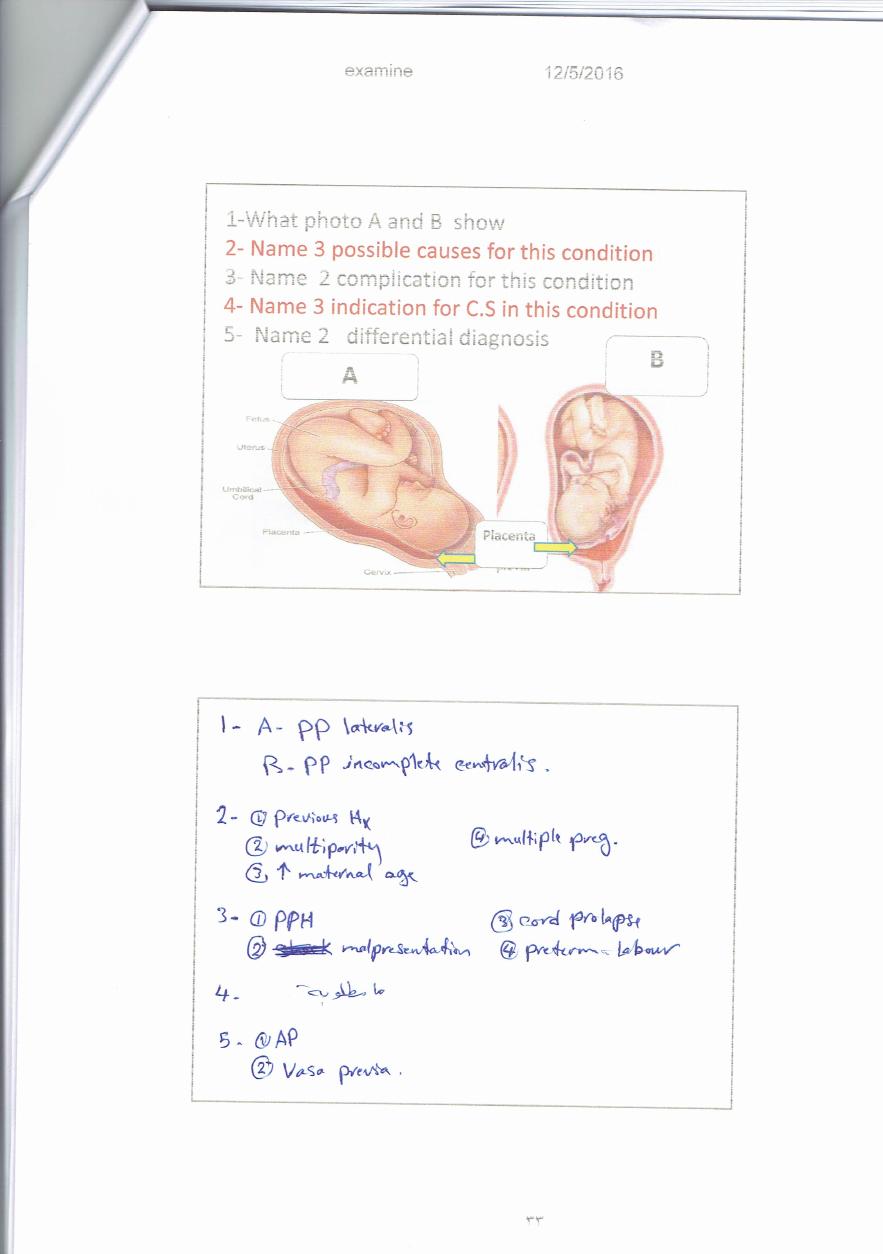 examine 12/5/2016
1-What photo A and B show
2- Name 3 possible causes for this condition
3- Name 2 complication for this condition
4- Name 3 indication for C.S in this condition
5- Name 2 differential diagnosis
A
B
Fetus
Uterus
Umbilical
Cord
Placenta
Placenta
Cervix
1- A- PP lateralis
B- PP incomplete centralis.
2- ① Previous Hx
② multiparity ④ multiple preg.
③ ↑ maternal age
3- ① PPH ③ cord prolapse
② malpresentation ④ preterm labour
4.
5. ① AP
② Vasa previa.
٣٣